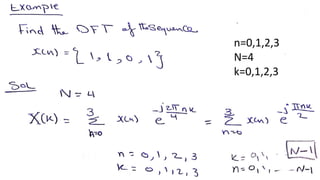 Example
Find the DFT of the sequence
x(n) = { 1, 1, 0, 1 }
n=0,1,2,3
N=4
k=0,1,2,3
Sol
N = 4
X(k) = 3 Σ n=0 x(n) e^(-j2πnk/4) = 3 Σ n=0 x(n) e^(-jπnk/2)
n = 0, 1, 2, 3
k = 0, 1, 2, 3
k = 0, 1, .. N-1
n = 0, 1, .. - N-1